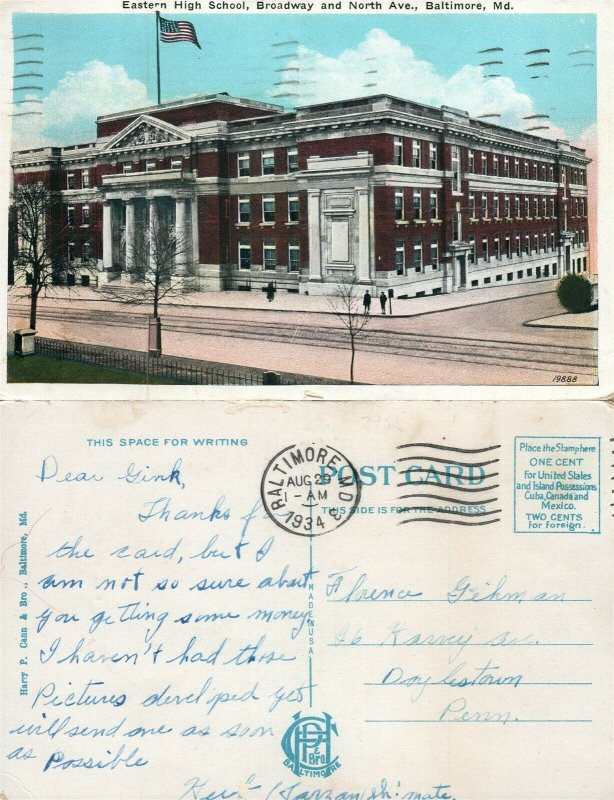 Eastern High School, Broadway and North Ave., Baltimore, Md.
19888
THIS SPACE FOR WRITING
Dear Gink,
Thanks for
the card, but I
am not so sure about
you getting some money.
I haven't had those
Pictures developed yet
will send one as soon
as Possible
Harry P. Cann & Bro., Baltimore, Md.
MADE IN USA
BALTIMORE, MD
AUG 29
1 - AM
1934
POST CARD
THIS SIDE IS FOR THE ADDRESS
Place the Stamp here
ONE CENT
For United States
and Island Possessions
Cuba, Canada and
Mexico.
TWO CENTS
for foreign.
Florence Gehman
Harvey Ave.
Doylestown
Penn.
& Bro.
BALTIMORE
(Tarzan) mate.